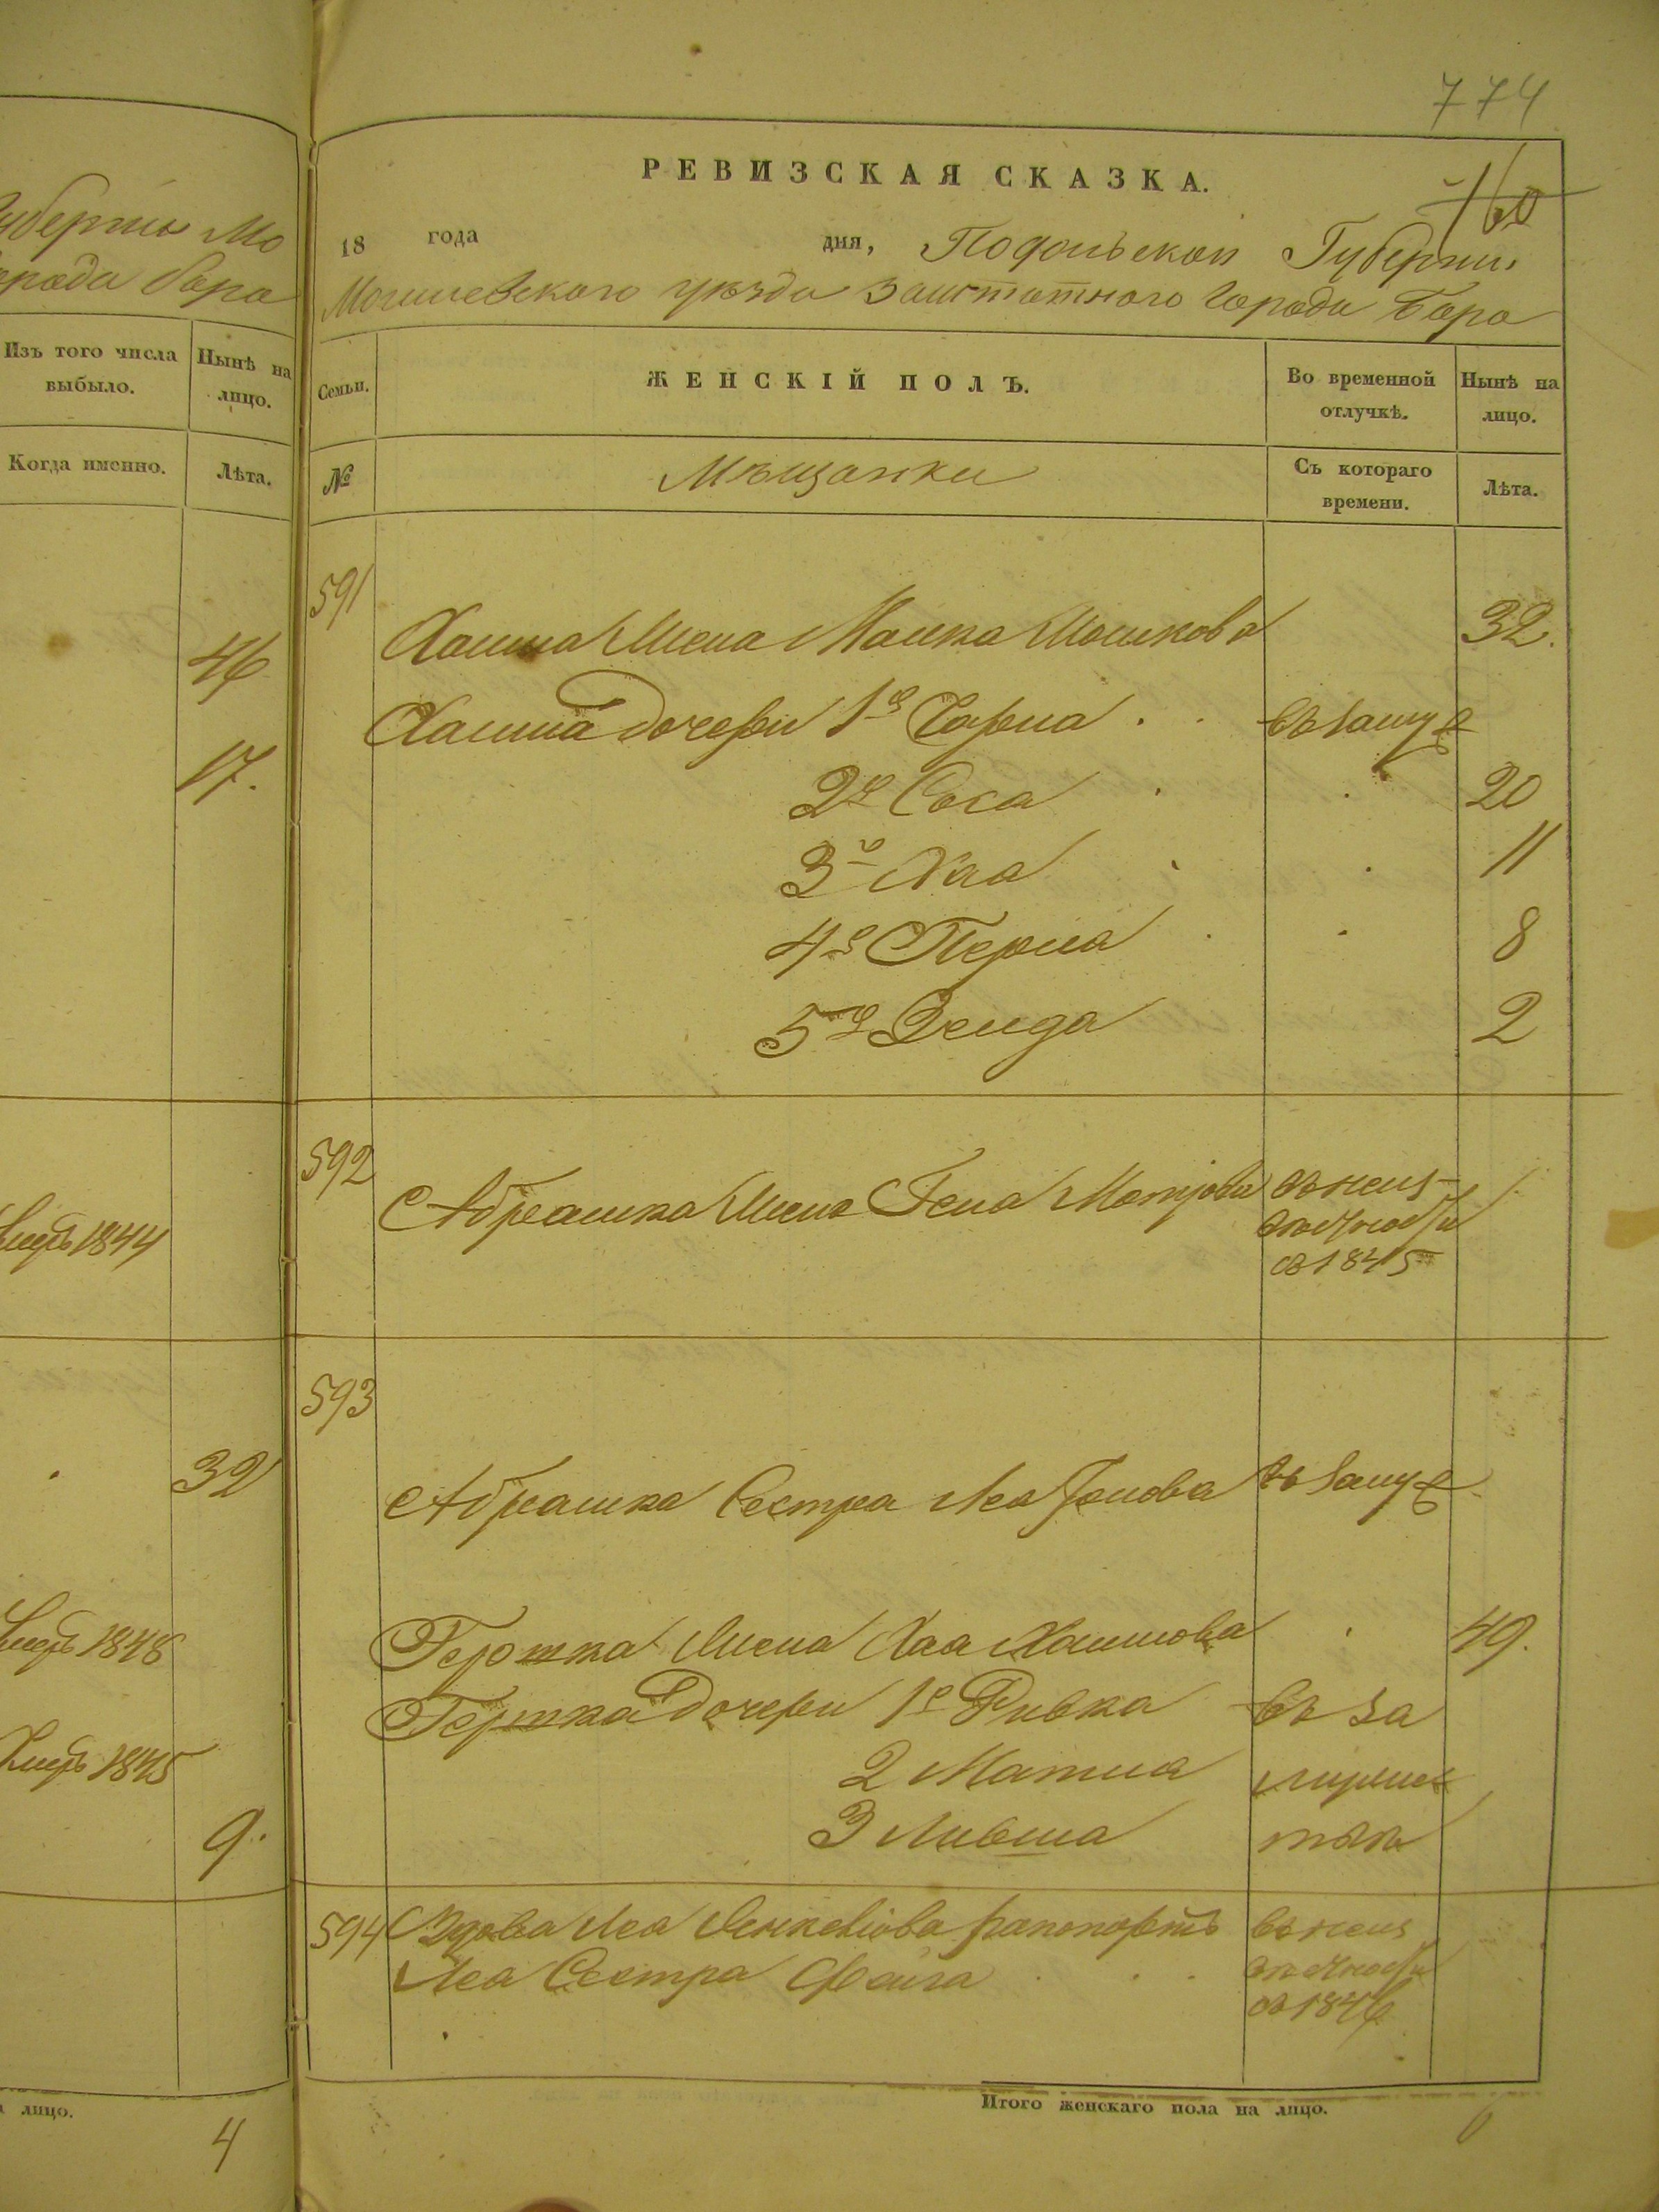 774
РЕВИЗСКАЯ СКАЗКА.
160
18 года дня, Подольской Губернии
Могилевского уѣзда Заштатного Города Бара
Губернии Мо
Города Бара
Изъ того числа выбыло.
Нынѣ на лицо.
Когда именно.
Лѣта.
46
17.
1844
32
1848
1845
9.
лицо.
4
Семьи.
ЖЕНСКІЙ ПОЛЪ.
Во временной отлучкѣ.
Нынѣ на лицо.
№
Мѣщанки
Съ котораго времени.
Лѣта.
591
Хаима Жена Малка Мошкова 32.
Хаима дочери 1я Чарна въ замуж
2я Сося 20
3я Хая 11
4я Перла 8
5я Зенда 2
592
Абрамка Жена Гена въ неиз-
вѣстности
съ 1845
593
Абрамка Сестра Леа въ замуж
Гершка Жена Хая Хаимова 49.
Гершка дочери 1я Ривка въ за
2 Матля мужес
3 Ливша твѣ
594 Вдова Леа Янкелiова рапопортъ въ неиз
Леа Сестра Фейга вѣстности
съ 1846
Итого женскаго пола на лицо.
6